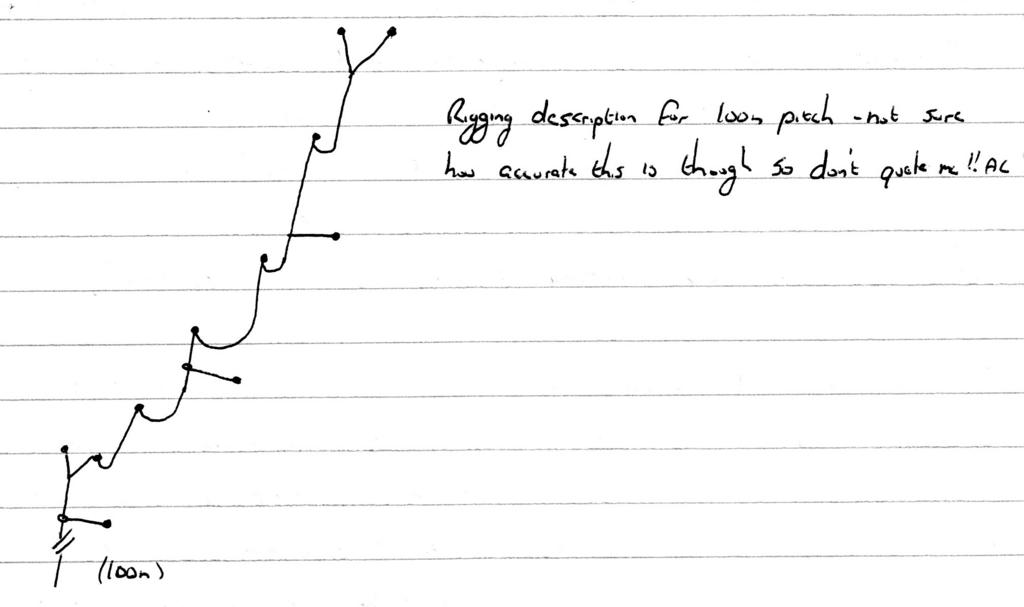 Rigging description for 100m pitch - not sure
how accurate this is though so don't quote me!! AC
(100m)